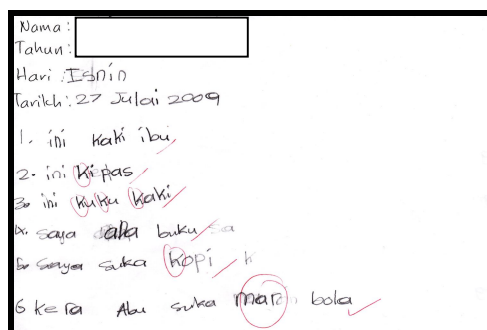 Nama :
Tahun :
Hari : Isnin
Tarikh : 27 Julai 2009
1. ini kaki ibu
2. ini kipas
3. ini kuku kaki
4. saya ada buku
5. Saya suka kopi
6 kera Abu suka bola